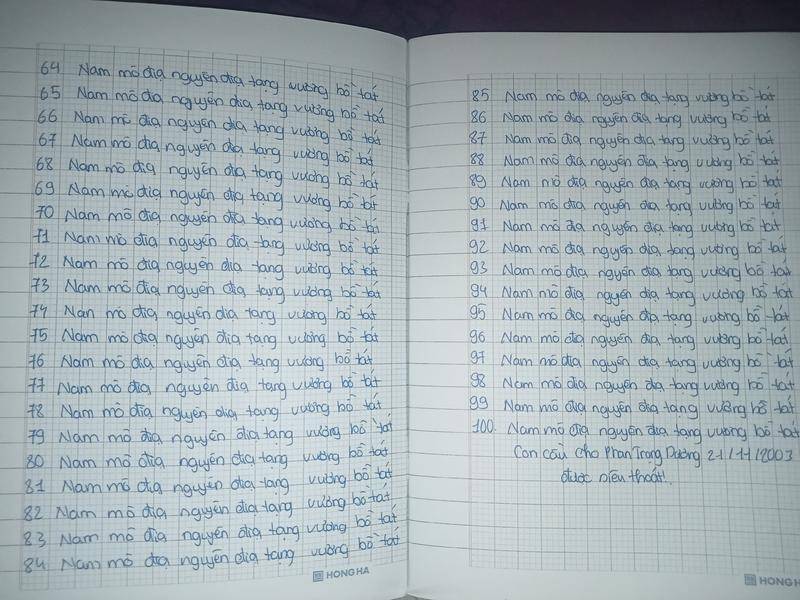 64 Nam mô địa nguyên địa tạng vương bồ tát
65 Nam mô địa nguyên địa tạng vương bồ tát
66 Nam mô địa nguyên địa tạng vương bồ tát
67 Nam mô địa nguyên địa tạng vương bồ tát
68 Nam mô địa nguyên địa tạng vương bồ tát
69 Nam mô địa nguyên địa tạng vương bồ tát
70 Nam mô địa nguyên địa tạng vương bồ tát
71 Nam mô địa nguyên địa tạng vương bồ tát
72 Nam mô địa nguyên địa tạng vương bồ tát
73 Nam mô địa nguyên địa tạng vương bồ tát
74 Nam mô địa nguyên địa tạng vương bồ tát
75 Nam mô địa nguyên địa tạng vương bồ tát
76 Nam mô địa nguyên địa tạng vương bồ tát
77 Nam mô địa nguyên địa tạng vương bồ tát
78 Nam mô địa nguyên địa tạng vương bồ tát
79 Nam mô địa nguyên địa tạng vương bồ tát
80 Nam mô địa nguyên địa tạng vương bồ tát
81 Nam mô địa nguyên địa tạng vương bồ tát
82 Nam mô địa nguyên địa tạng vương bồ tát
83 Nam mô địa nguyên địa tạng vương bồ tát
84 Nam mô địa nguyên địa tạng vương bồ tát
HONG HA
85 Nam mô địa nguyên địa tạng vương bồ tát
86 Nam mô địa nguyên địa tạng vương bồ tát
87 Nam mô địa nguyên địa tạng vương bồ tát
88 Nam mô địa nguyên địa tạng vương bồ tát
89 Nam mô địa nguyên địa tạng vương bồ tát
90 Nam mô địa nguyên địa tạng vương bồ tát
91 Nam mô địa nguyên địa tạng vương bồ tát
92 Nam mô địa nguyên địa tạng vương bồ tát
93 Nam mô địa nguyên địa tạng vương bồ tát
94 Nam mô địa nguyên địa tạng vương bồ tát
95 Nam mô địa nguyên địa tạng vương bồ tát
96 Nam mô địa nguyên địa tạng vương bồ tát
97 Nam mô địa nguyên địa tạng vương bồ tát
98 Nam mô địa nguyên địa tạng vương bồ tát
99 Nam mô địa nguyên địa tạng vương bồ tát
100. Nam mô địa nguyên địa tạng vương bồ tát
Con cầu cho Phan Trọng Dương 21/11/2003
được niêu thoát!
HONG H